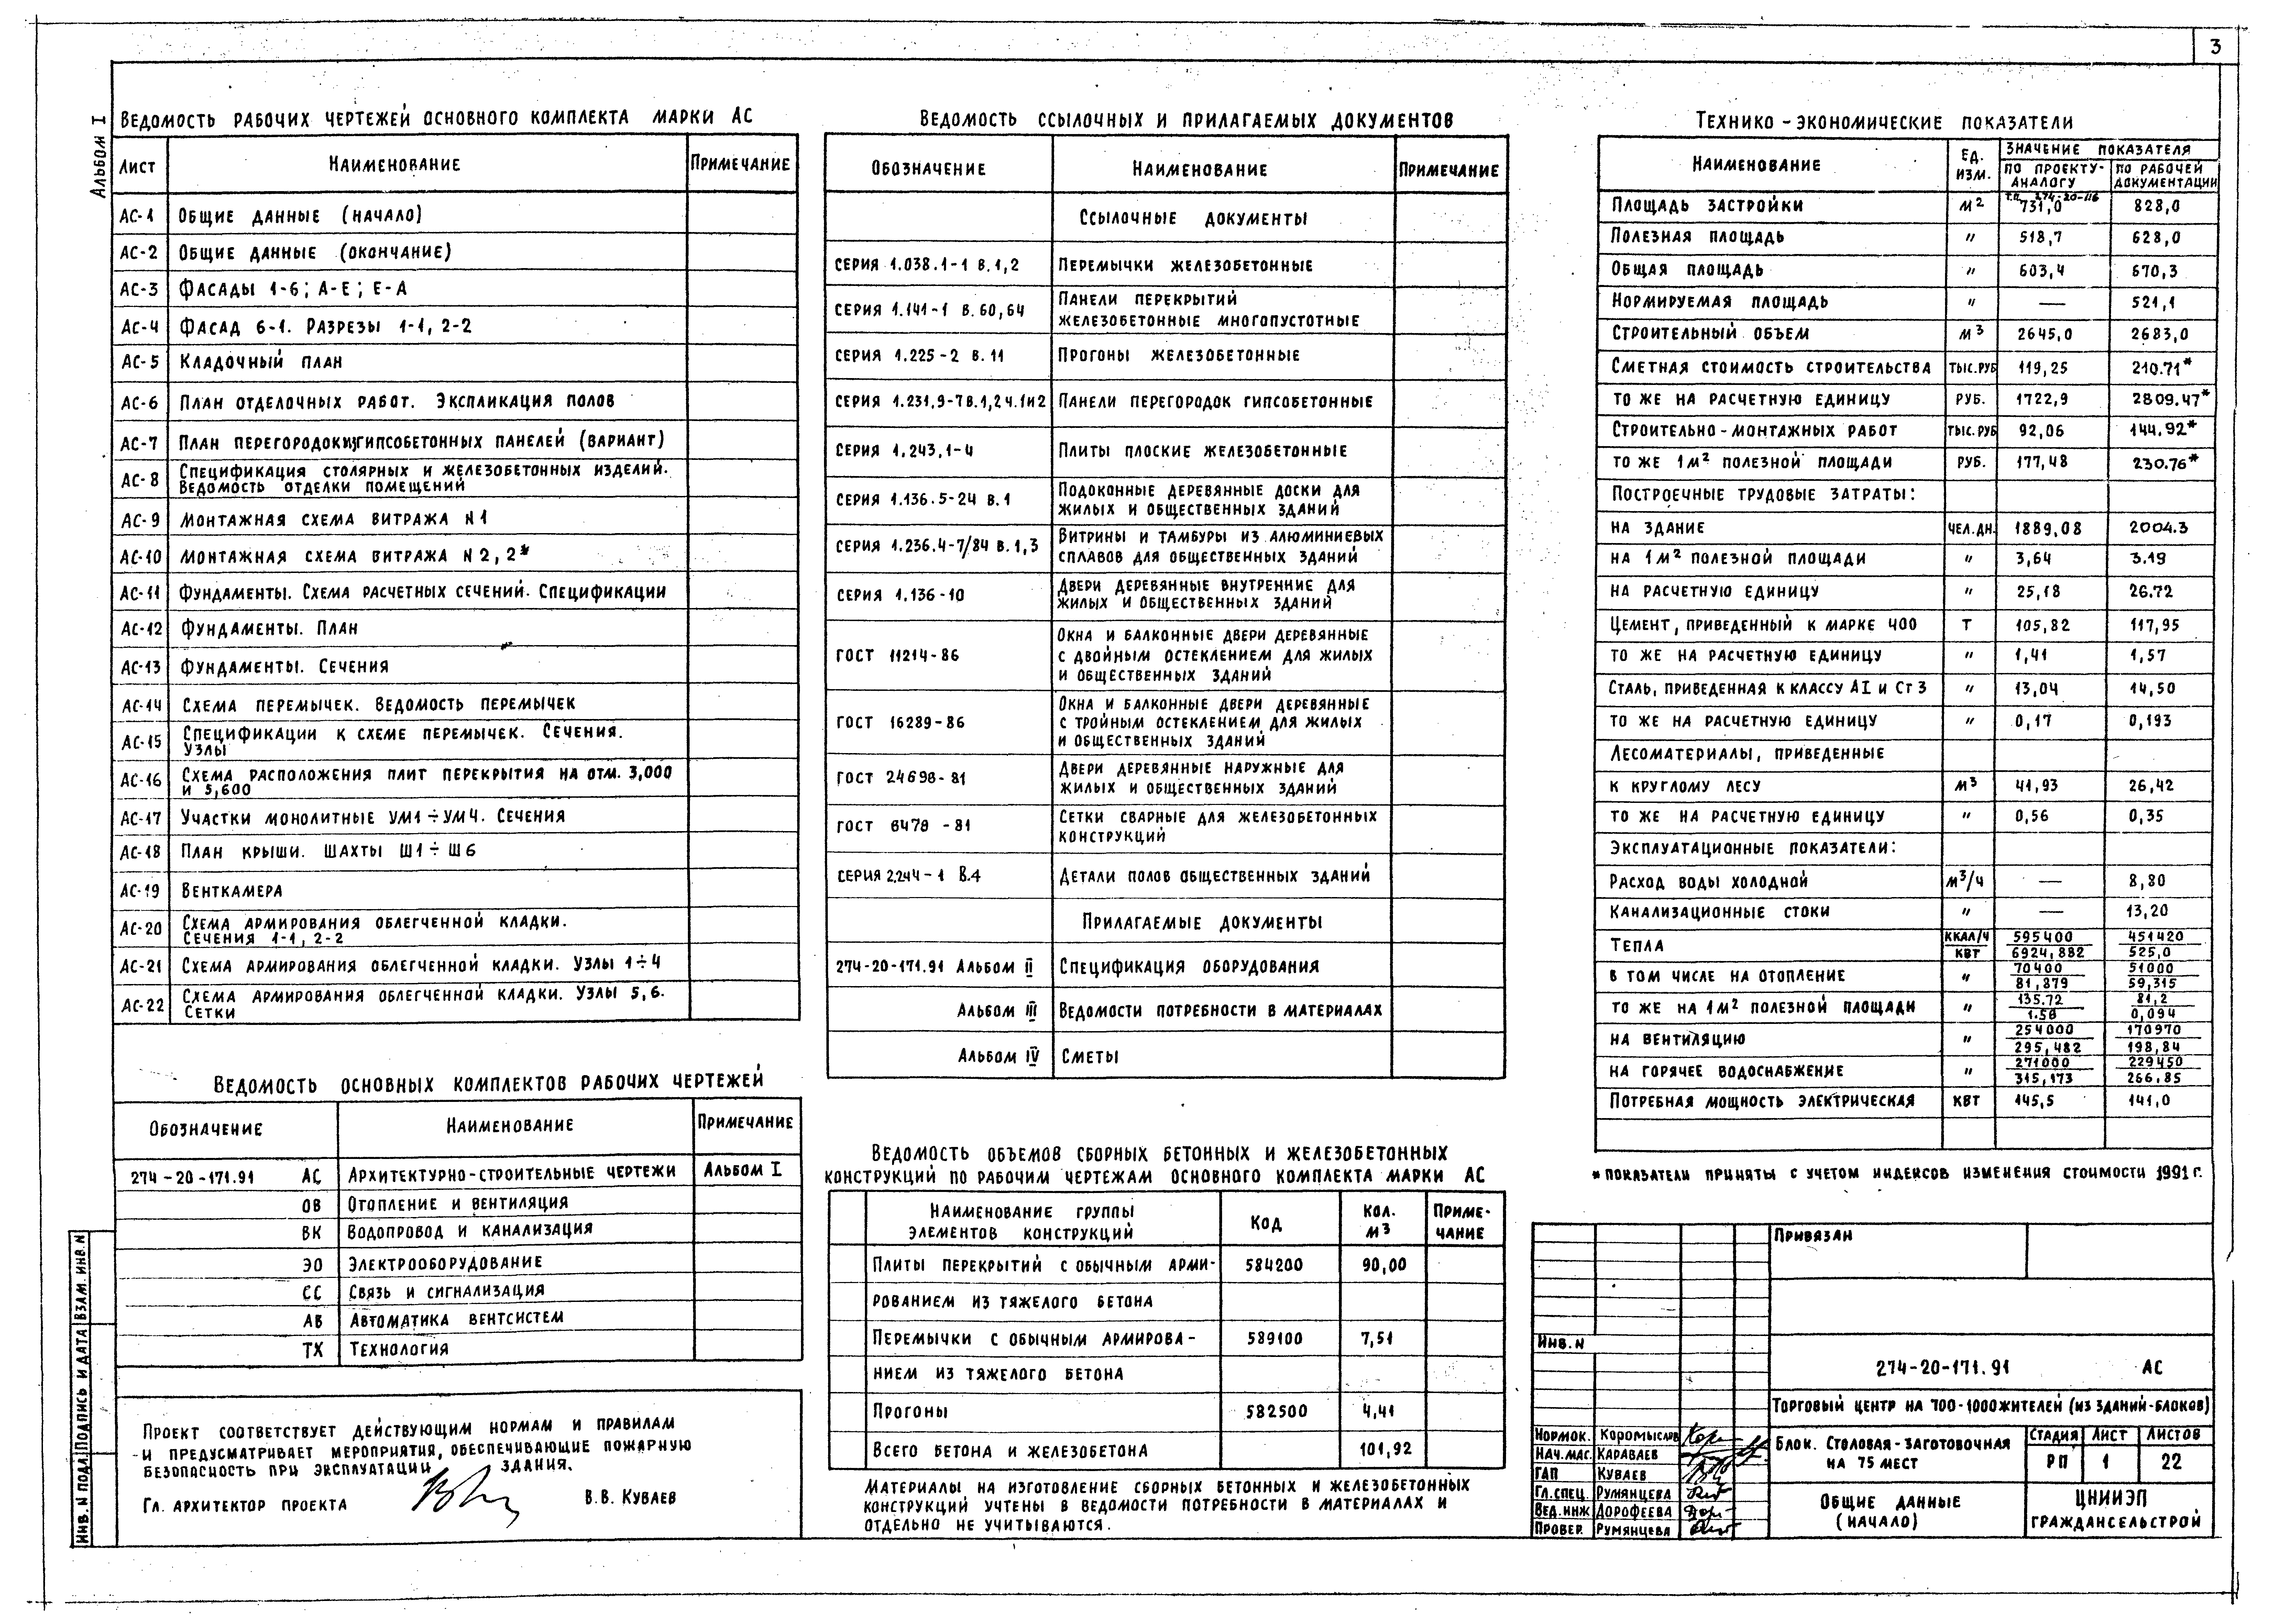 3
Альбом I
Ведомость рабочих чертежей основного комплекта марки АС
Лист Наименование Примечание
АС-1 Общие данные (начало)
АС-2 Общие данные (окончание)
АС-3 Фасады 1-6; А-Е; Е-А
АС-4 Фасад 6-1. Разрезы 1-1, 2-2
АС-5 Кладочный план
АС-6 План отделочных работ. Экспликация полов
АС-7 План перегородок из гипсобетонных панелей (вариант)
АС-8 Спецификация столярных и железобетонных изделий.
Ведомость отделки помещений
АС-9 Монтажная схема витража N1
АС-10 Монтажная схема витража N2, 2*
АС-11 Фундаменты. Схема расчетных сечений. Спецификации
АС-12 Фундаменты. План
АС-13 Фундаменты. Сечения
АС-14 Схема перемычек. Ведомость перемычек
АС-15 Спецификации к схеме перемычек. Сечения.
Узлы
АС-16 Схема расположения плит перекрытия на отм. 3,000
и 5,600
АС-17 Участки монолитные УМ1÷УМ4. Сечения
АС-18 План крыши. Шахты Ш1÷Ш6
АС-19 Венткамера
АС-20 Схема армирования облегченной кладки.
Сечения 1-1, 2-2
АС-21 Схема армирования облегченной кладки. Узлы 1÷4
АС-22 Схема армирования облегченной кладки. Узлы 5,6.
Сетки
Ведомость основных комплектов рабочих чертежей
Обозначение Наименование Примечание
274-20-171.91 АС Архитектурно-строительные чертежи Альбом I
ОВ Отопление и вентиляция
ВК Водопровод и канализация
ЭО Электрооборудование
СС Связь и сигнализация
АВ Автоматика вентсистем
ТХ Технология
Проект соответствует действующим нормам и правилам
и предусматривает мероприятия, обеспечивающие пожарную
безопасность при эксплуатации здания.
Гл. архитектор проекта В.В. Куваев
Инв. N подл. Подпись и дата Взам. инв. N
Ведомость ссылочных и прилагаемых документов
Обозначение Наименование Примечание
Ссылочные документы
Серия 1.038.1-1 В.1,2 Перемычки железобетонные
Серия 1.141-1 В.60,64 Панели перекрытий
железобетонные многопустотные
Серия 1.225-2 В.11 Прогоны железобетонные
Серия 1.231.9-7 В.1,2 ч.1и2 Панели перегородок гипсобетонные
Серия 1.243.1-4 Плиты плоские железобетонные
Серия 1.136.5-24 В.1 Подоконные деревянные доски для
жилых и общественных зданий
Серия 1.236.4-7/84 В.1,3 Витрины и тамбуры из алюминиевых
сплавов для общественных зданий
Серия 1.136-10 Двери деревянные внутренние для
жилых и общественных зданий
ГОСТ 11214-86 Окна и балконные двери деревянные
с двойным остеклением для жилых
и общественных зданий
ГОСТ 16289-86 Окна и балконные двери деревянные
с тройным остеклением для жилых
и общественных зданий
ГОСТ 24698-81 Двери деревянные наружные для
жилых и общественных зданий
ГОСТ 8478-81 Сетки сварные для железобетонных
конструкций
Серия 2.244-1 В.4 Детали полов общественных зданий
Прилагаемые документы
274-20-171.91 Альбом II Спецификация оборудования
Альбом III Ведомости потребности в материалах
Альбом IV Сметы
Ведомость объемов сборных бетонных и железобетонных
конструкций по рабочим чертежам основного комплекта марки АС
Наименование группы элементов конструкций Код Кол. м3 Приме-чание
Плиты перекрытий с обычным арми- 584200 90,00
рованием из тяжелого бетона
Перемычки с обычным армирова- 589100 7,51
нием из тяжелого бетона
Прогоны 582500 4,41
Всего бетона и железобетона 101,92
Материалы на изготовление сборных бетонных и железобетонных
конструкций учтены в ведомости потребности в материалах и
отдельно не учитываются.
Технико-экономические показатели
Наименование Ед. изм. Значение показателя
по проекту-аналогу по рабочей документации
т.п. 274-20-116
Площадь застройки м2 731,0 828,0
Полезная площадь " 518,7 628,0
Общая площадь " 603,4 670,3
Нормируемая площадь " — 521,1
Строительный объем м3 2645,0 2683,0
Сметная стоимость строительства тыс.руб 119,25 210.71*
то же на расчетную единицу руб. 1722,9 2809.47*
Строительно-монтажных работ тыс.руб 92,06 144.92*
то же 1м2 полезной площади руб. 177,48 230.76*
Построечные трудовые затраты:
на здание чел.дн. 1889,08 2004.3
на 1м2 полезной площади " 3,64 3.19
на расчетную единицу " 25,18 26.72
Цемент, приведенный к марке 400 т 105,82 117,95
то же на расчетную единицу " 1,41 1,57
Сталь, приведенная к классу АI и Ст3 " 13,04 14,50
то же на расчетную единицу " 0,17 0,193
Лесоматериалы, приведенные
к круглому лесу м3 41,93 26,42
то же на расчетную единицу " 0,56 0,35
Эксплуатационные показатели:
Расход воды холодной м3/ч — 8,80
Канализационные стоки " — 13,20
Тепла ккал/ч 595400 451420
квт 6924,882 525,0
в том числе на отопление " 70400 51000
81,879 59,315
то же на 1м2 полезной площади " 135.72 81,2
1.58 0,094
на вентиляцию " 254000 170970
295,482 198,84
на горячее водоснабжение " 271000 229450
315,173 266.85
Потребная мощность электрическая квт 145,5 141,0
* показатели приняты с учетом индексов изменения стоимости 1991 г.
Привязан
Инв. N
274-20-171.91 АС
Торговый центр на 700-1000 жителей (из зданий-блоков)
Нормок. Коромыслов
Нач.мас. Караваев
ГАП Куваев
Гл.спец. Румянцева
Вед.инж Дорофеева
Провер. Румянцева
Блок. Столовая-заготовочная
на 75 мест
Стадия Лист Листов
РП 1 22
Общие данные
(начало)
ЦНИИЭП
Граждансельстрой